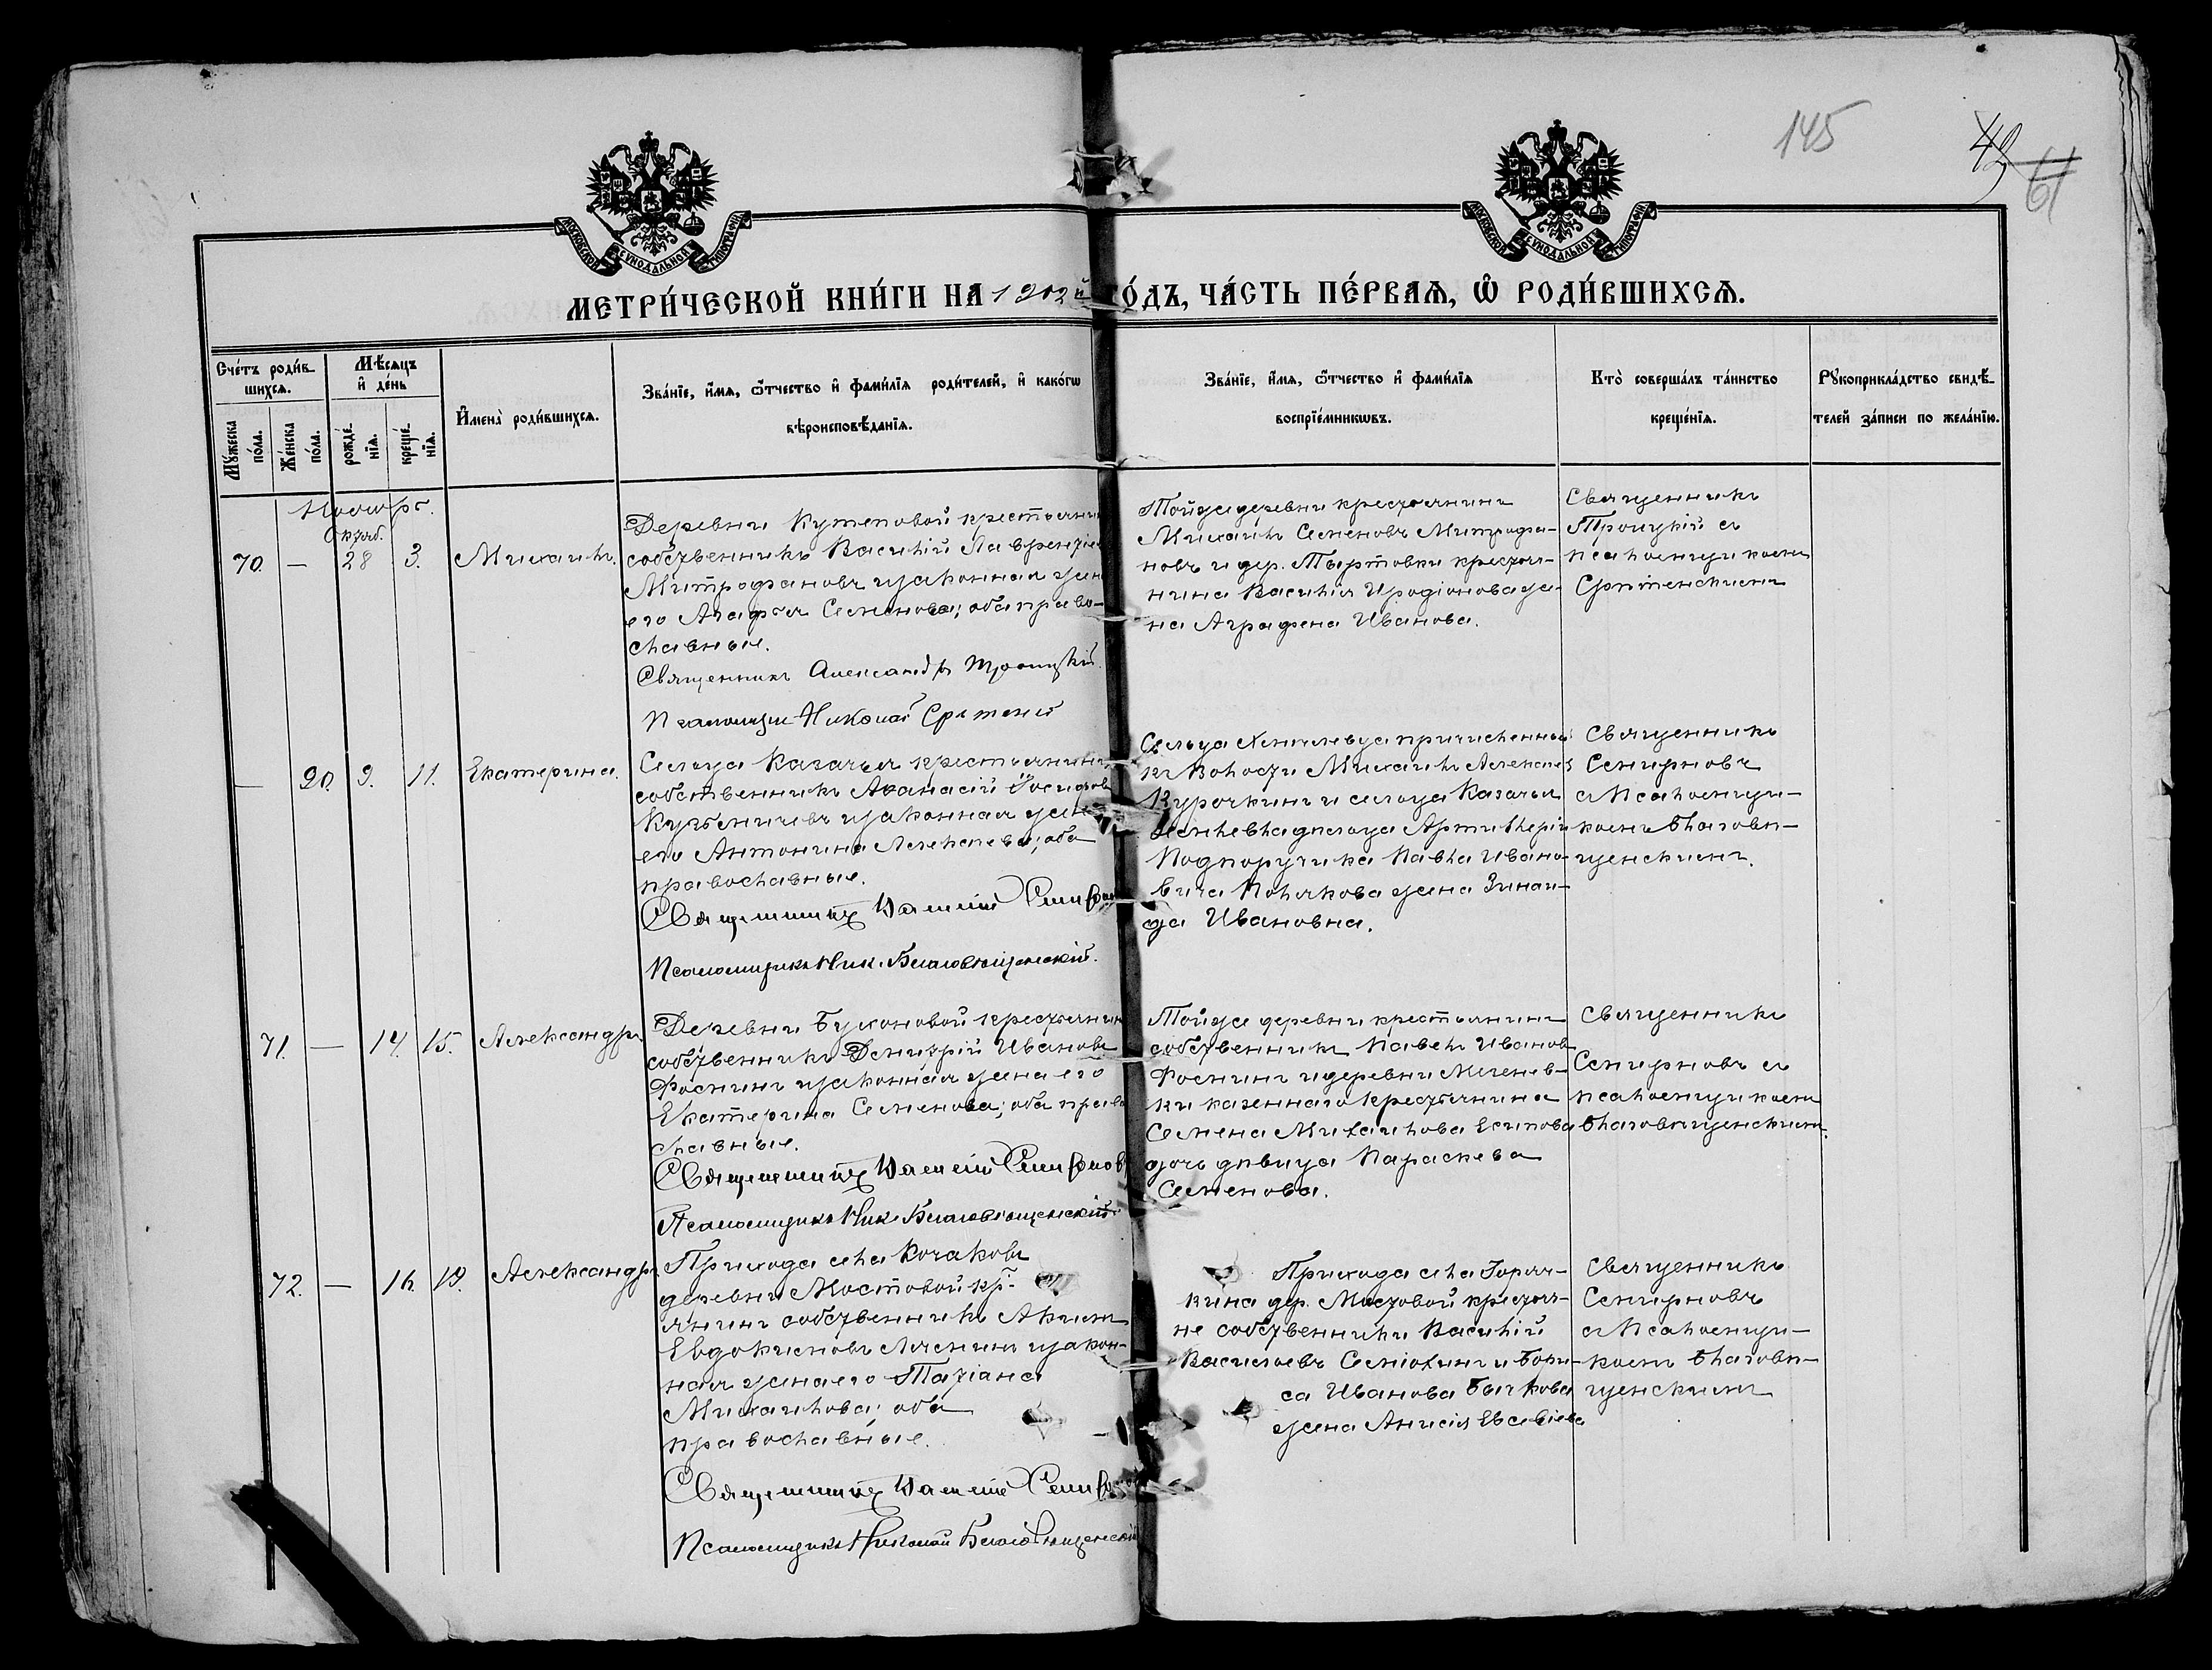 145
42
61
МОСКОВСКОЙ СѴНОДАЛЬНОЙ ТИПОГРАФІИ
МОСКОВСКОЙ СѴНОДАЛЬНОЙ ТИПОГРАФІИ
МЕТРИ́ЧЕСКОЙ КНИ́ГИ НА 1902й ГО́ДЪ, ЧА́СТЬ ПЕ́РВАѦ, Ѡ РОДИ́ВШИХСѦ.
Сче́тъ роди́в-
шихсѧ.
Мꙋ́жеска по́ла.
Же́нска по́ла.
Мѣ́сѧцъ
и де́нь
рожде́-
нїѧ.
креще́-
нїѧ.
Имена̀ роди́вшихсѧ.
Зва́нїе, и́мѧ, ѻ́тчество и фами́лїѧ роди́телей, и како́гѡ
вѣроисповѣ́данїѧ.
Зва́нїе, и́мѧ, ѻ́тчество и фами́лїѧ
воспрїе́мникѡвъ.
Кто̀ соверша́лъ та́инство
креще́нїѧ.
Рꙋкоприкла́дство свидѣ́-
телей за́писи по жела́нїю.
Ноябрь.
Октяб.
70. — 28 3. Михаилъ.
Деревни Кутеповой крестьянин
собственникъ Василій Лаврентіев
Митрофановъ и законная жена
его Агафья Семенова; оба право-
славные.
Священникъ Александръ Троицкій.
Псаломщик Николай Срѣтенский
Тойже деревни крестьянинъ
Михаилъ Семеновъ Митрофа-
новъ и дер. Тыртовки крестья-
нина Василія Иродіонова же-
на Аграфена Иванова.
Священникъ
Троицкій съ
псаломщикомъ
Срѣтенскимъ
— 20. 9. 11. Екатерина.
Сельца Казачья крестьянинъ
собственникъ Аѳанасій Іосифов
Кузьмичевъ и законная жена
его Антонина Алексѣева; оба
православные.
Священникъ Василій Смирнов
Псаломщикъ Ник. Благовѣщенскій.
Сельца причисленный
къ волости Михаилъ Алексѣев
Курочкинъ и сельца Казачьи
Артиллеріи
Подпоручика Павла Ивано-
вича Полякова жена Зинаи-
да Ивановна.
Священникъ
Смирновъ
съ Псаломщи-
комъ Благовѣ-
щенскимъ.
71. — 14. 15. Александръ
Деревни Бухоновой крестьянин
собственникъ Димитрій Иванов
Фоминъ и законная жена его
Екатерина Семенова; оба право
славные.
Священникъ Василій Смирнов
Псаломщикъ Ник. Благовѣщенскій.
Тойже деревни крестьянинъ
собственникъ Павелъ Иванов
Фоминъ и деревни Мигенев-
ки казеннаго крестьянина
Семена Михаилова Есипова
дочь дѣвица Параскева
Семенова.
Священникъ
Смирновъ съ
псаломщикомъ
Благовѣщенскимъ.
72. — 16. 19. Александръ
Прихода села Кочаковъ
деревни Мостовой кр-
янинъ собственникъ Акимъ
Евдокимовъ Лямкинъ и закон-
ная жена его Татіана
Михаилова; оба
православные.
Священникъ Василій Смирнов
Псаломщикъ Николай Благовѣщенскій
Прихода села Горяч-
кина дер. Мостовой крестья-
не собственники Василій
Васильевъ Семіохинъ и Бори-
са Иванова Бычкова
жена Анисія Евсевіева
Священникъ
Смирновъ
съ Псаломщи-
комъ Благовѣ-
щенскимъ